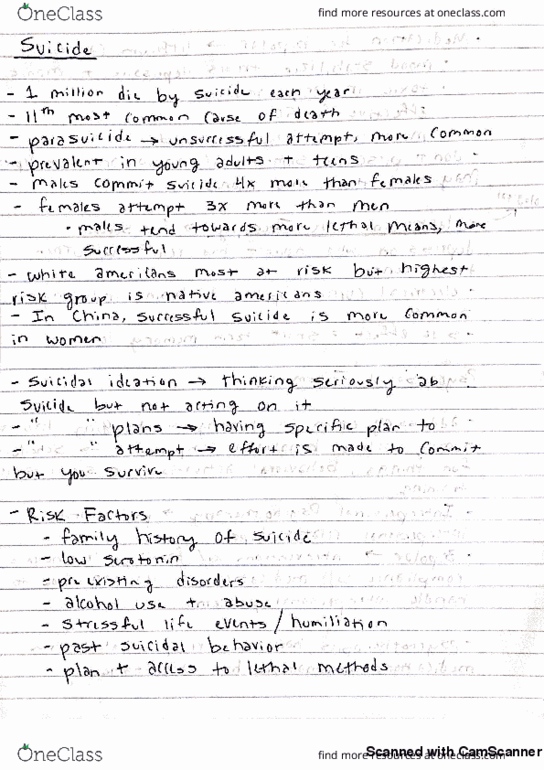 OneClass
find more resources at oneclass.com
Suicide
- 1 million die by suicide each year
- 11th most common cause of death
- parasuicide → unsuccessful attempt, more common
- prevalent in young adults + teens
- males commit suicide 4x more than females
- females attempt 3x more than men
• males tend towards more lethal means, more
successful
- white americans most at risk but highest
risk group is native americans
- In China, successful suicide is more common
in women
- Suicidal ideation → thinking seriously ab
suicide but not acting on it
- " " plans → having specific plan to
- " " attempt → effort is made to commit
but you survive
- Risk Factors
- family history of suicide
- low serotonin
- pre existing disorders
- alcohol use + abuse
- stressful life events / humiliation
- past suicidal behavior
- plan + access to lethal methods
OneClass
find more resources at oneclass.com
Scanned with CamScanner